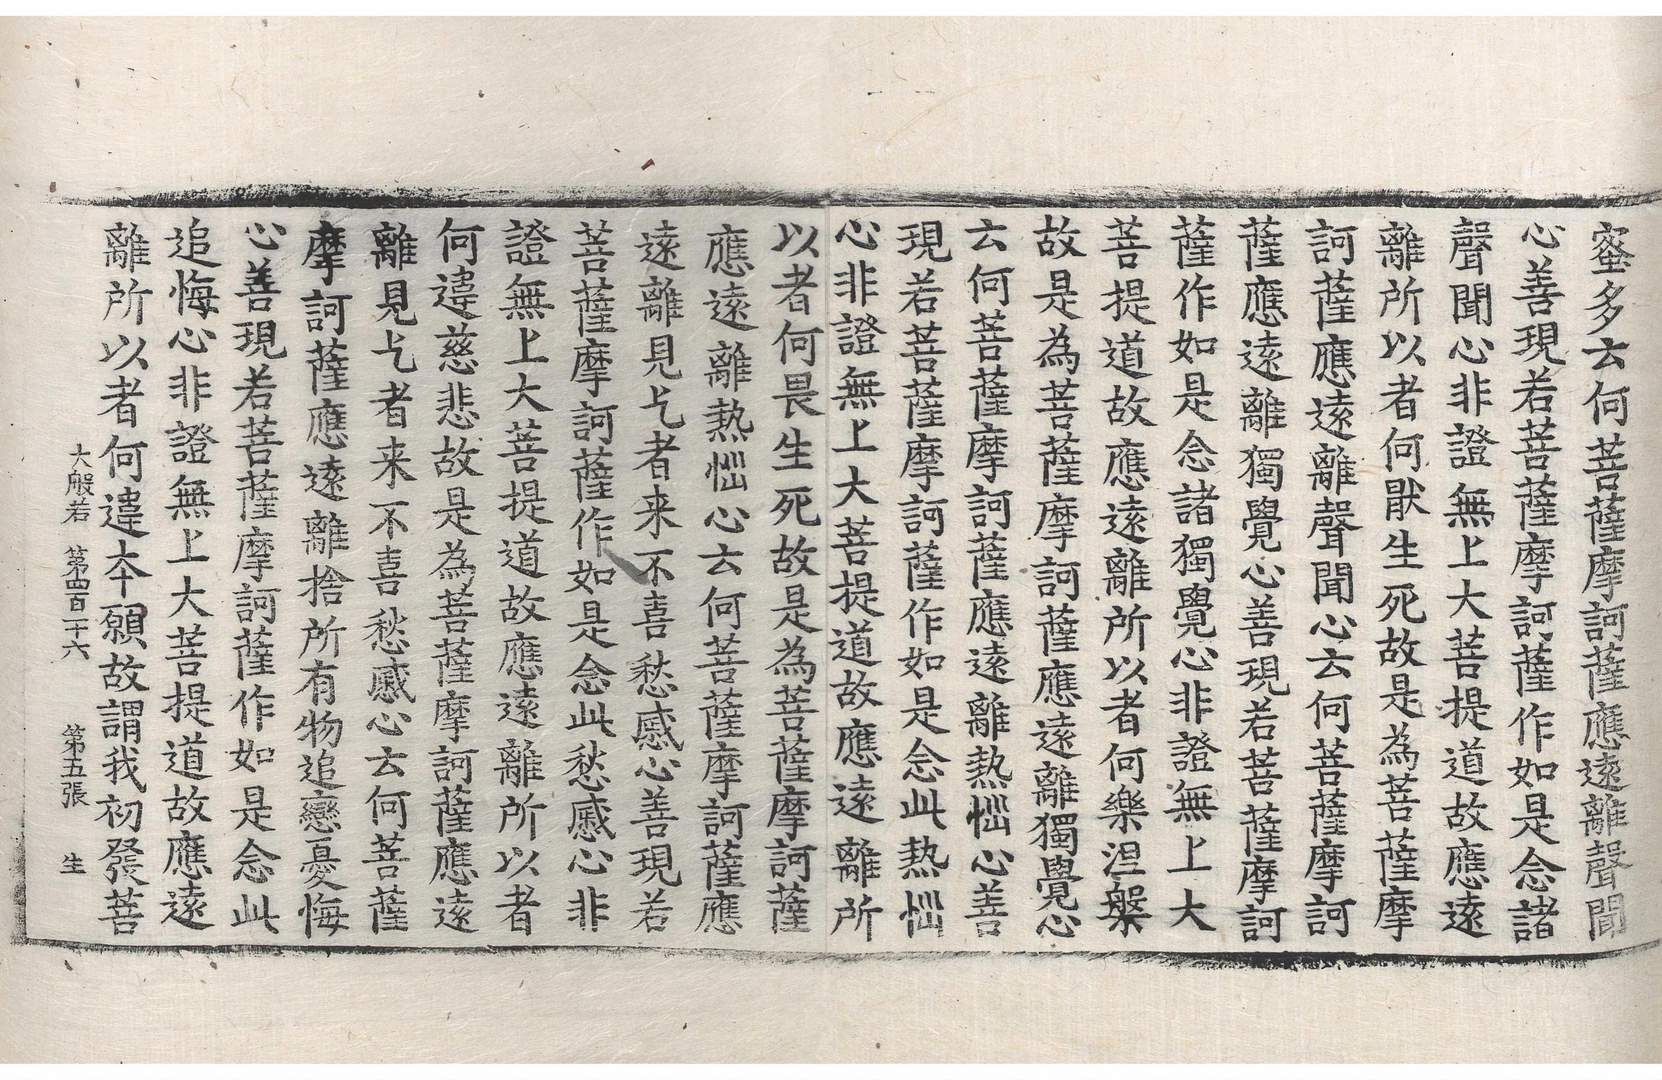 蜜多云何菩薩摩訶薩應遠離聲聞
心善現若菩薩摩訶薩作如是念諸
聲聞心非證無上大菩提道故應遠
離所以者何厭生死故是為菩薩摩
訶薩應遠離聲聞心云何菩薩摩訶
薩應遠離獨覺心善現若菩薩摩訶
薩作如是念諸獨覺心非證無上大
菩提道故應遠離所以者何樂涅槃
故是為菩薩摩訶薩應遠離獨覺心
云何菩薩摩訶薩應遠離熱惱心善
現若菩薩摩訶薩作如是念此熱惱
心非證無上大菩提道故應遠離所
以者何畏生死故是為菩薩摩訶薩
應遠離熱惱心云何菩薩摩訶薩應
遠離見乞者来不喜愁慼心善現若
菩薩摩訶薩作如是念此愁慼心非
證無上大菩提道故應遠離所以者
何違慈悲故是為菩薩摩訶薩應遠
離見乞者来不喜愁慼心云何菩薩
摩訶薩應遠離捨所有物追戀憂悔
心善現若菩薩摩訶薩作如是念此
追悔心非證無上大菩提道故應遠
離所以者何違本願故謂我初發菩
大般若 第四百一十六 第五張 生